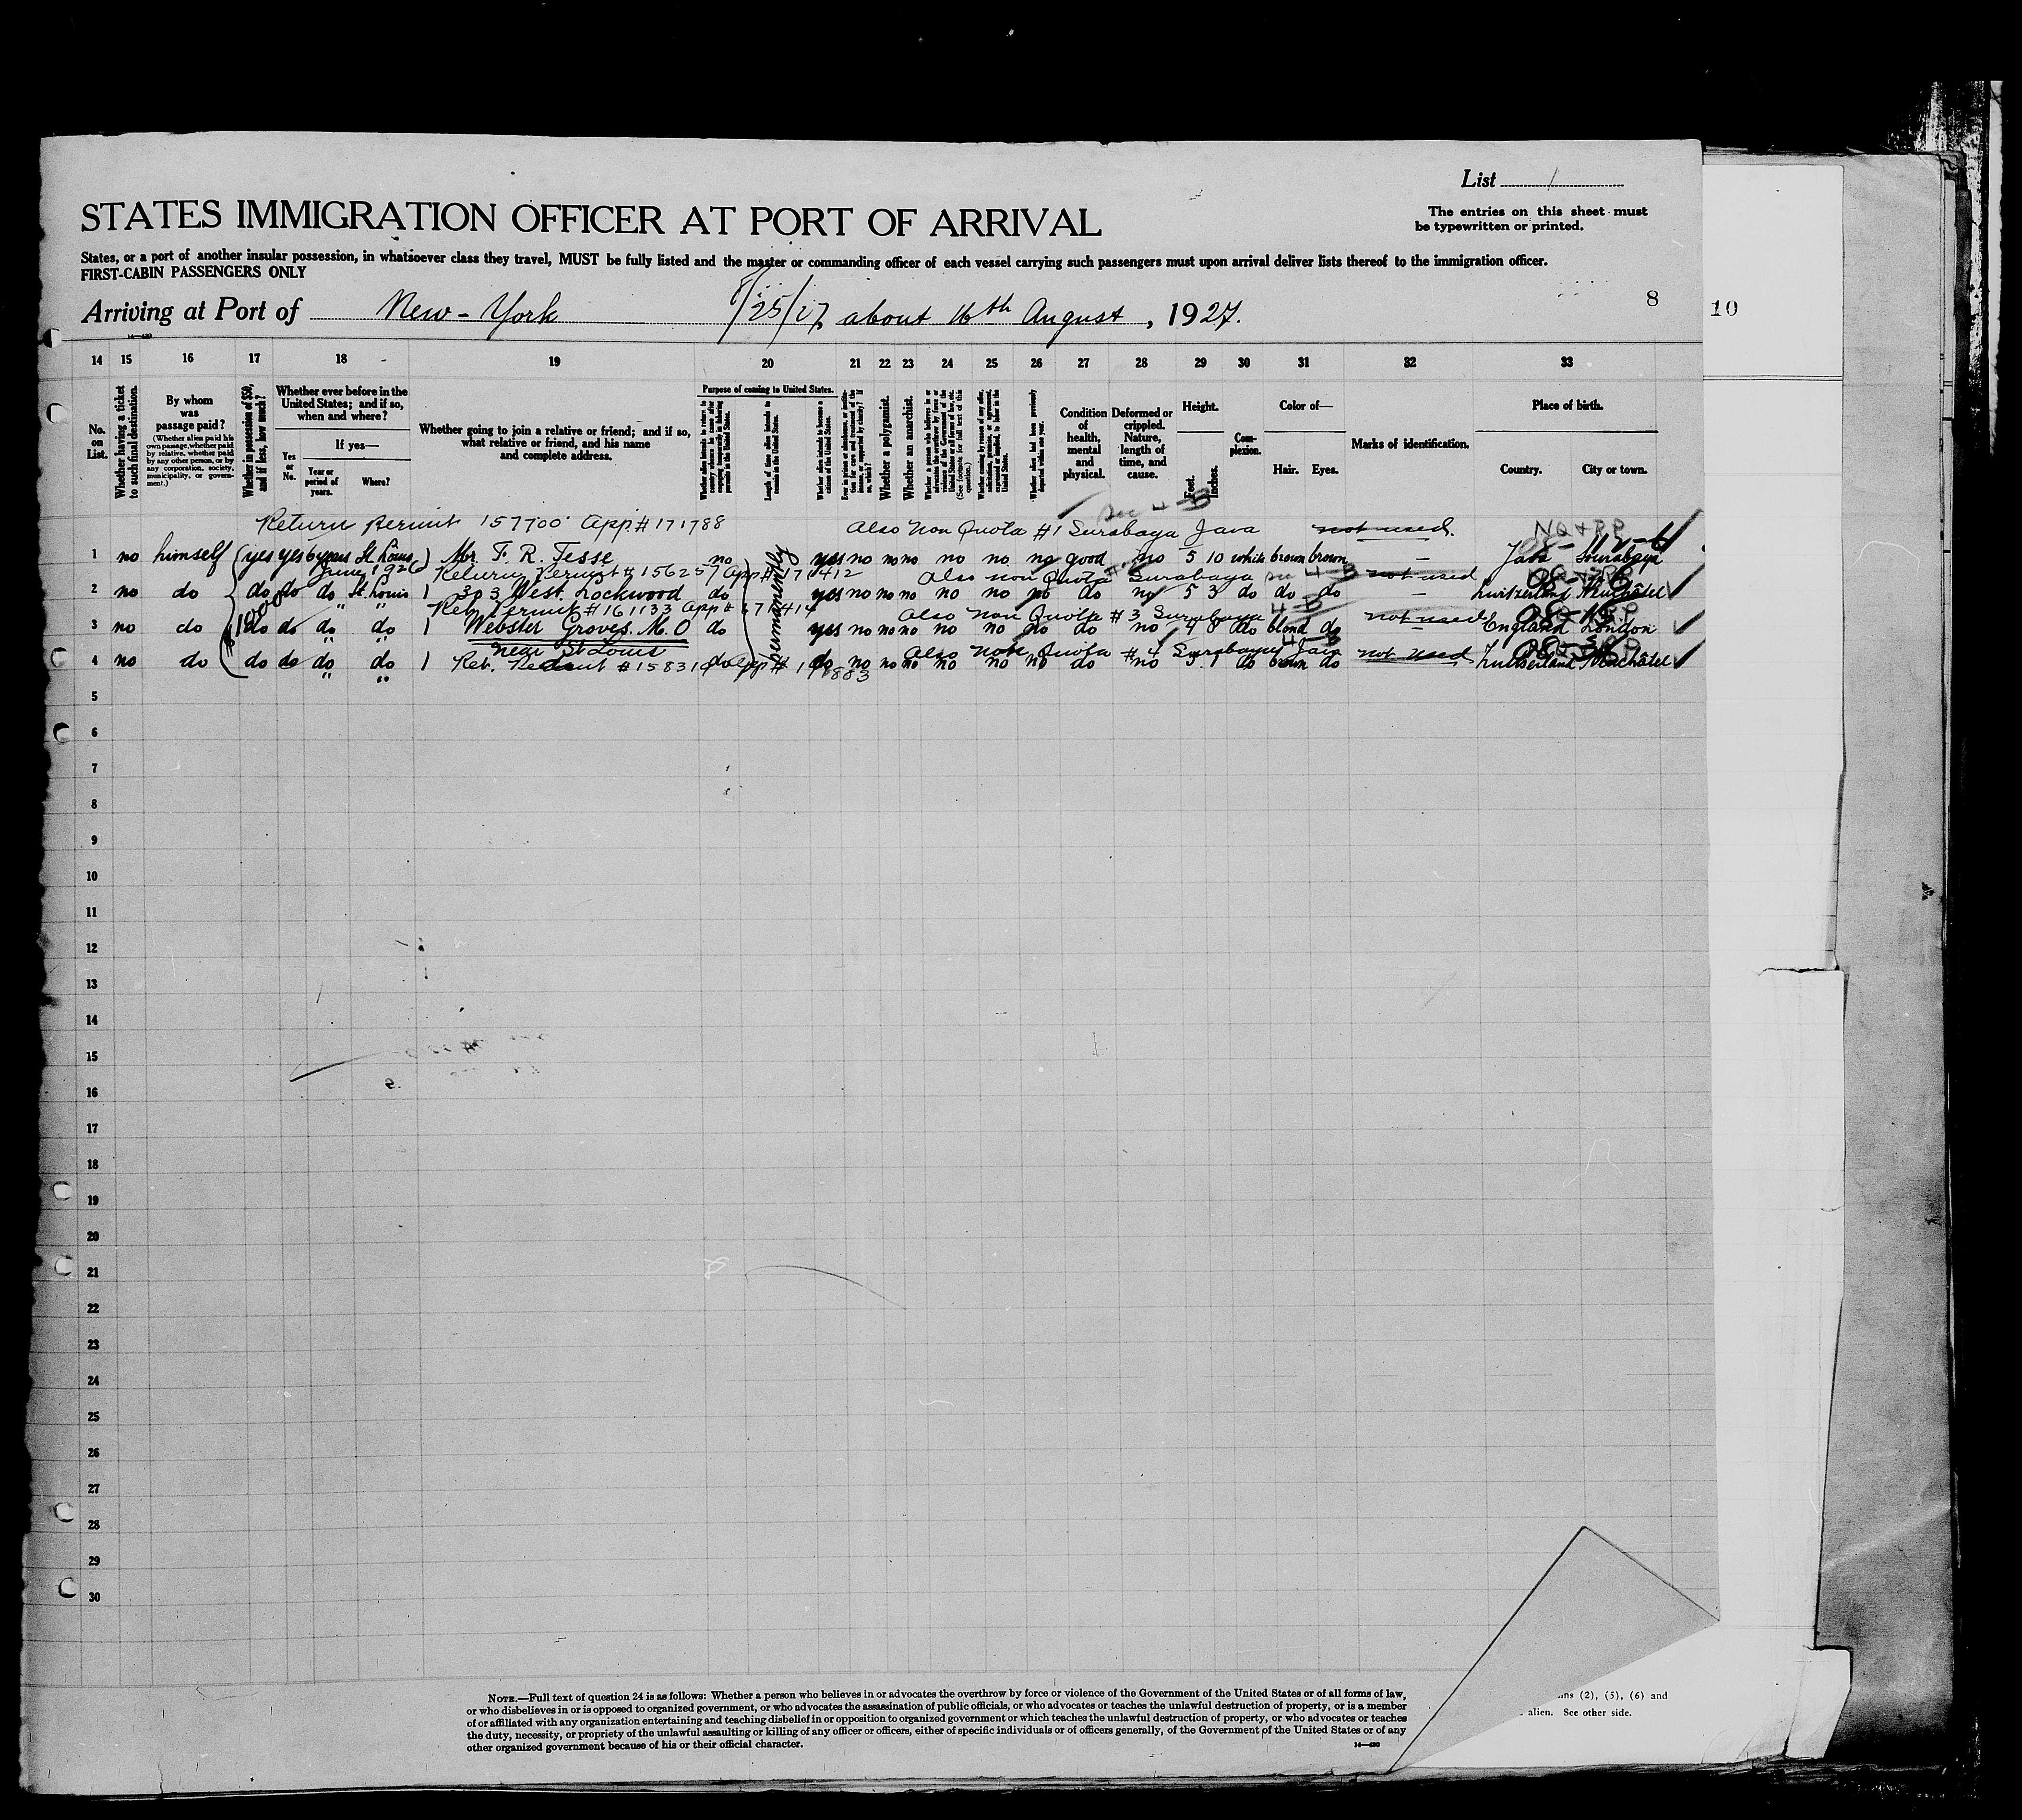 List 1
STATES IMMIGRATION OFFICER AT PORT OF ARRIVAL
The entries on this sheet must
be typewritten or printed.
States, or a port of another insular possession, in whatsoever class they travel, MUST be fully listed and the master or commanding officer of each vessel carrying such passengers must upon arrival deliver lists thereof to the immigration officer.
FIRST-CABIN PASSENGERS ONLY
Arriving at Port of New-York 8/25/27, about 16th August, 1927.
8
10
14—430
14 15 16 17 18 19 20 21 22 23 24 25 26 27 28 29 30 31 32 33
No. on List.
Whether having a ticket to such final destination.
By whom was passage paid?
(Whether alien paid his own passage, whether paid by relative, whether paid by any other person, or by any corporation, society, municipality, or government.)
Whether in possession of $50, and if less, how much?
Whether ever before in the United States; and if so, when and where?
If yes—
Yes or No.
Year or period of years.
Where?
Whether going to join a relative or friend; and if so, what relative or friend, and his name and complete address.
Purpose of coming to United States.
Length of time alien intends to remain in the United States.
Whether alien intends to become a citizen of the United States.
Whether a polygamist.
Whether an anarchist.
(See footnote for full text of this question.)
Whether alien had been previously deported within one year.
Condition of health, mental and physical.
Deformed or crippled. Nature, length of time, and cause.
Height.
Feet. Inches.
Complexion.
Color of—
Hair. Eyes.
Marks of identification.
Place of birth.
Country. City or town.
Return Permit 157700 App# 171788 Also Non Quota #1 Surabaya Java not used.
1 no himself yes yes 6 years St. Louis 1 Mr. F. R. Tesse no permanently yes no no no no no no good no 5 10 white brown brown — Java Sourabaya
June 1926 Return Permit # 156257 App# Also non Quota Surabaya 4-B not used
2 no do do do do St. Louis 1 303 West. Lockwood do yes no no no no no no do no 5 3 do do do — Switzerland Neuchâtel
Ret. Permit # 161133 App# Also Non Quota #3 Surabaya 4-B not used
3 no do do do do do 1 Webster Groves. M.O do yes no no no no no no do no 4 8 do blond do England London
near St Louis Also Non Quota #4 Surabaya Java 4-B not used
4 no do do do do do 1 do do no no no no no no do no 5 1 do brown do Switzerland Neuchâtel
5
6
7
8
9
10
11
12
13
14
15
16
17
18
19
20
21
22
23
24
25
26
27
28
29
30
NOTE.—Full text of question 24 is as follows: Whether a person who believes in or advocates the overthrow by force or violence of the Government of the United States or of all forms of law,
or who disbelieves in or is opposed to organized government, or who advocates the assassination of public officials, or who advocates or teaches the unlawful destruction of property, or is a member
of or affiliated with any organization entertaining and teaching disbelief in or opposition to organized government or which teaches the unlawful destruction of property, or who advocates or teaches
the duty, necessity, or propriety of the unlawful assaulting or killing of any officer or officers, either of specific individuals or of officers generally, of the Government of the United States or of any
other organized government because of his or their official character.
14—430
(2), (5), (6) and
alien. See other side.